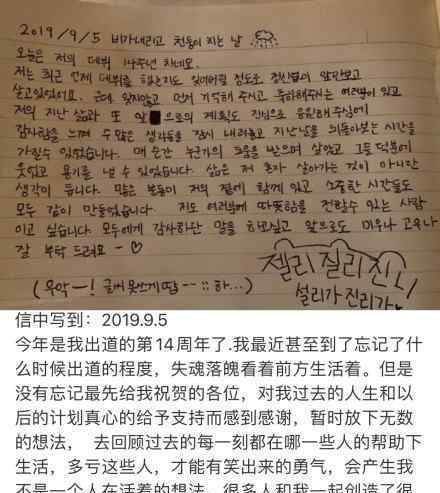 2019/9/5 비가내리고 천둥이 치는 날
오늘은 저의 데뷔 14주년 차네요.
저는 최근 언제 데뷔를 했는지도 잊어버릴 정도로 정신없이 앞만보고
살고있었어요. 근데 잊지않고 먼저 기억해 주시고 축하해주시는 여러분이 있고
저의 지난 삶과 또 앞으로의 계획도 진심으로 응원해 주심에
감사함을 느껴 수 많은 생각들을 잠시 내려놓고 지난날을 되돌아보는 시간을
가질수 있었습니다. 매 순간 누군가의 도움을 받으며 살았고 그들 덕분에
웃었고 용기를 낼 수 있었습니다. 삶은 저 혼자 살아가는 것이 아니란
생각이 듭니다. 많은 분들이 저의 곁에 함께 있고 소중한 시간들도
모두 같이 만들었습니다. 저도 여러분께 따뜻함을 전할수 있는 사람
이고 싶습니다. 모두에게 감사하단 말을 하고싶고 앞으로도 미우나 고우나
잘 부탁 드려요 - ♡
젤리 질리
(우악-! 글씨 하...)
설리가 진리가
信中写到：2019.9.5
今年是我出道的第14周年了.我最近甚至到了忘记了什
么时候出道的程度，失魂落魄看着前方生活着。但是
没有忘记最先给我祝贺的各位，对我过去的人生和以
后的计划真心的给予支持而感到感谢，暂时放下无数
的想法， 去回顾过去的每一刻都在哪一些人的帮助下
生活，多亏这些人，才能有笑出来的勇气，会产生我
不是一个人在活着的想法。很多人和我一起创造了很